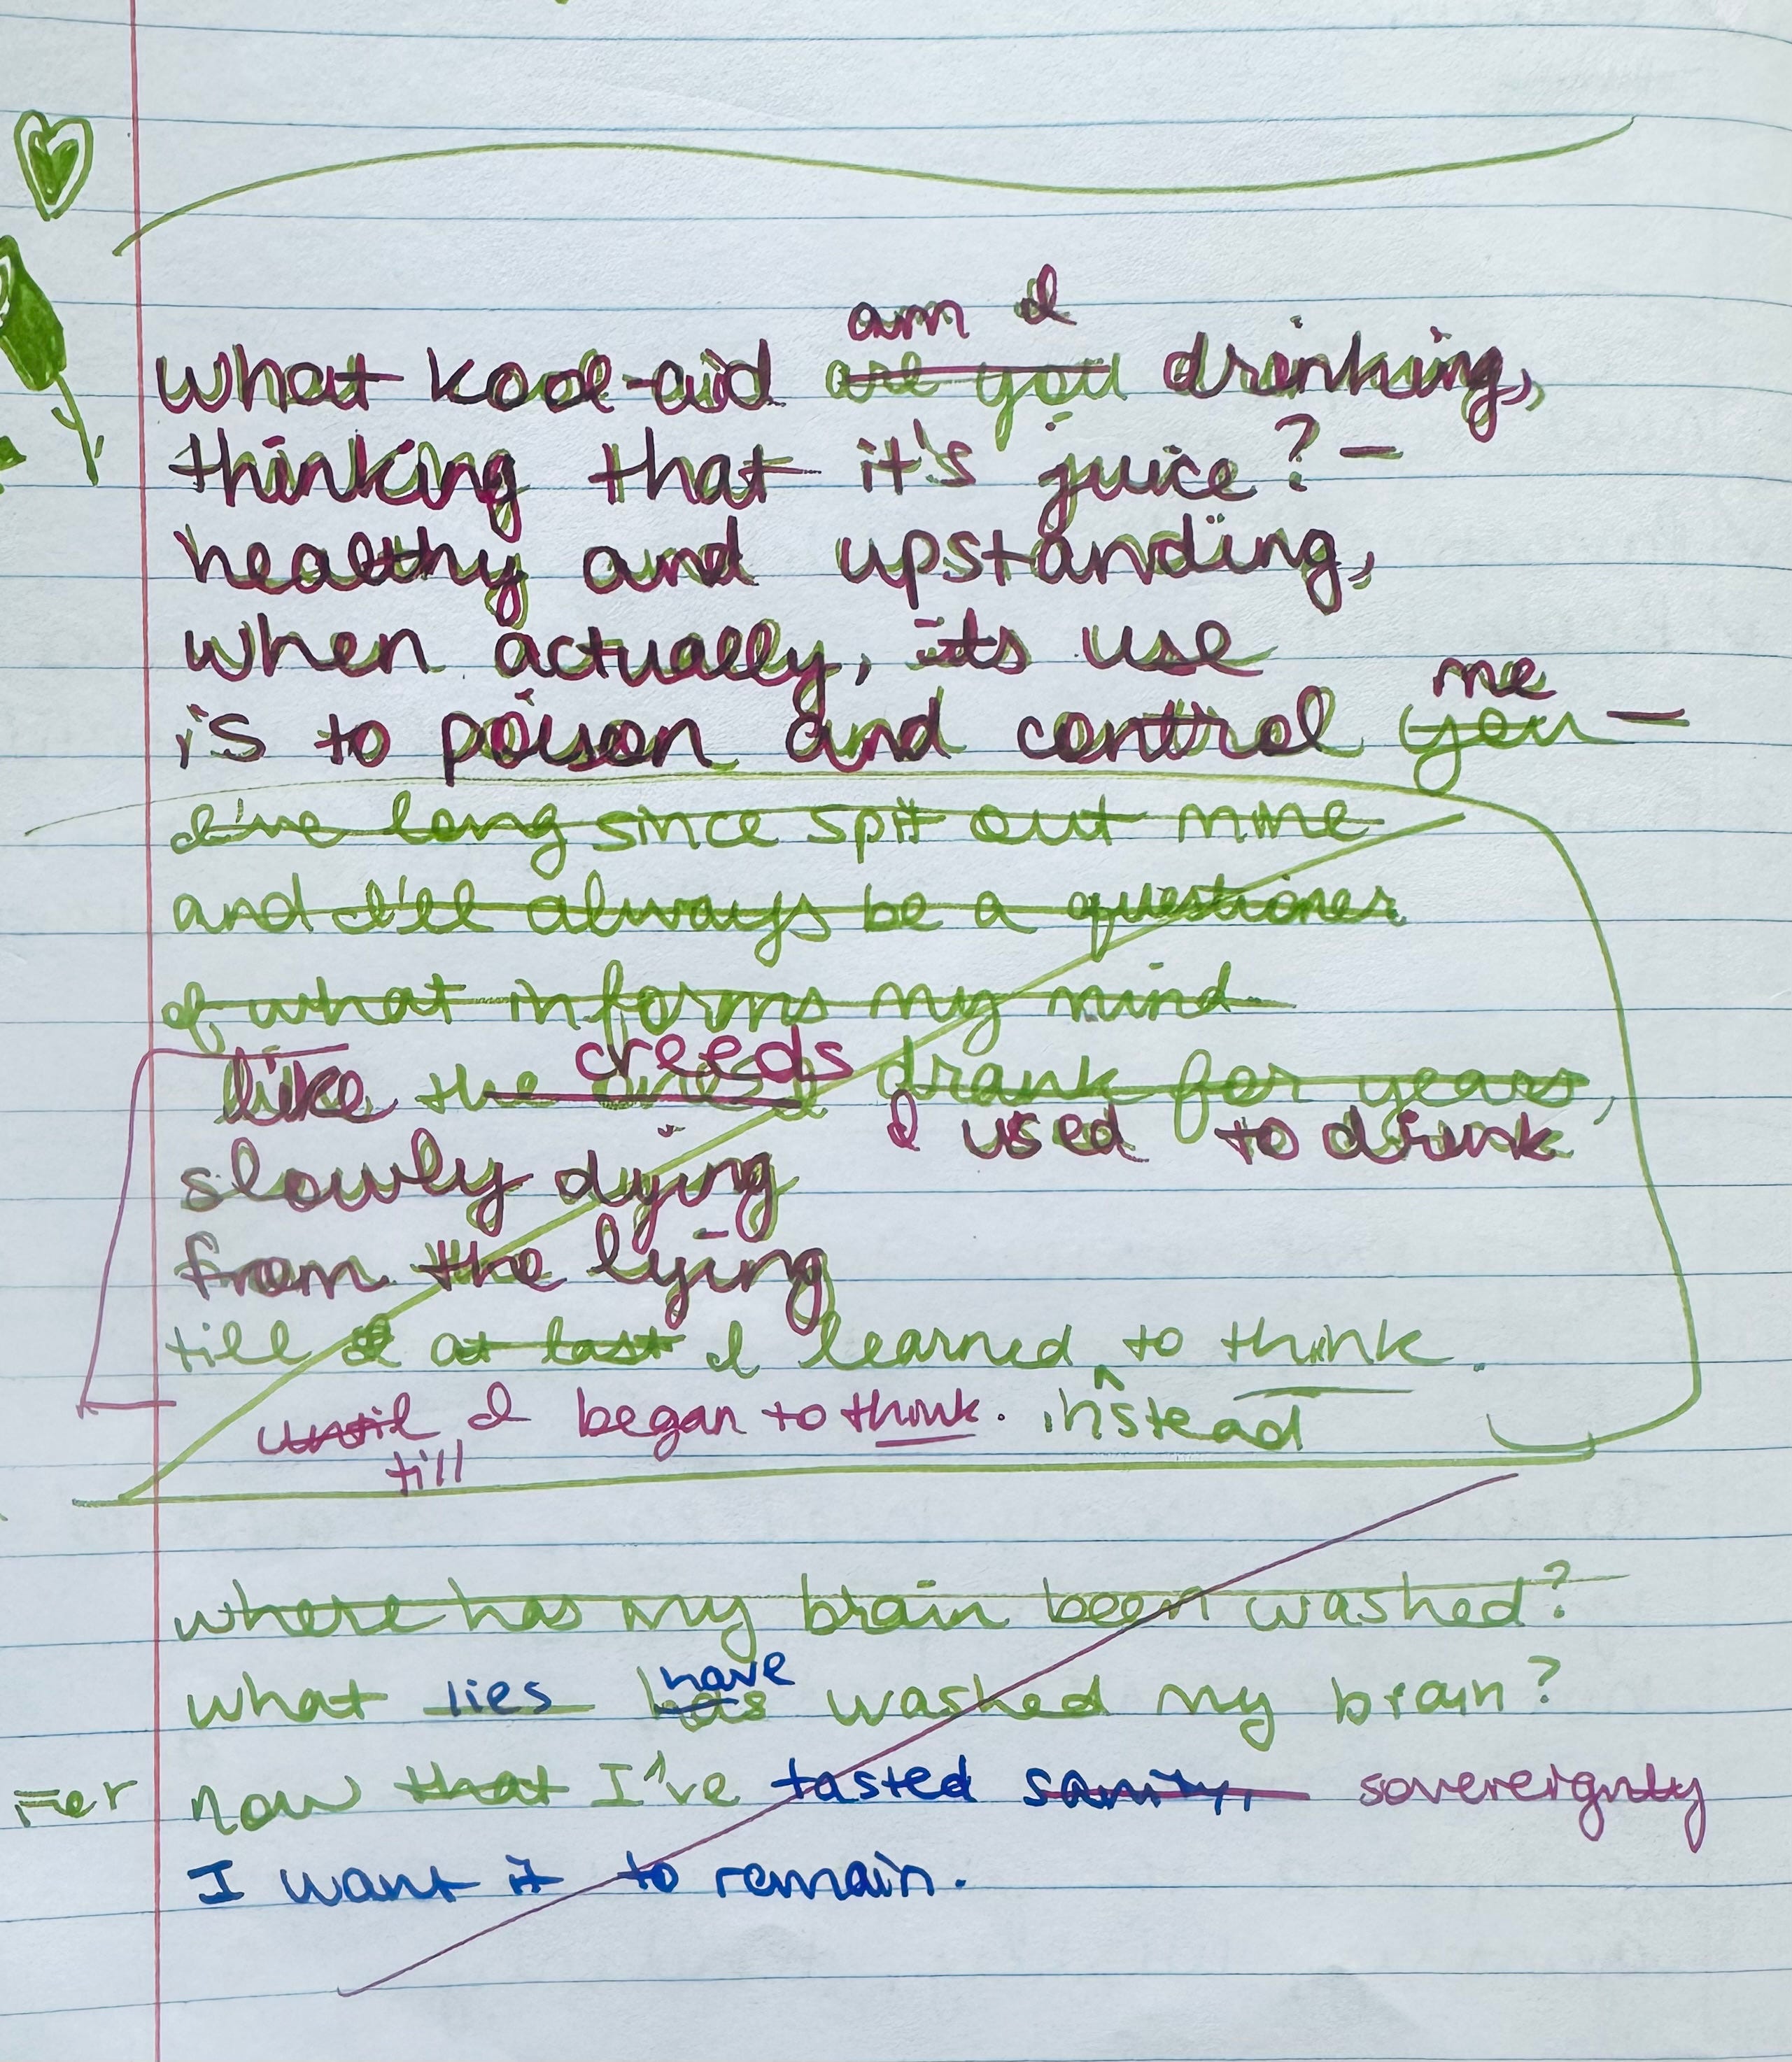 am I
what kool-aid are you drinking,
thinking that it's juice? –
healthy and upstanding,
when actually, its use
me
is to poison and control you –
I've long since spit out mine
and I'll always be a questioner
of what informs my mind
creeds
like the ones I drank for years,
I used to drink
slowly dying
from the lying
till I at last I learned to think.
until I began to think. instead
till
where has my brain been washed?
have
what lies has washed my brain?
For now that I've tasted sanity, sovereignty
I want it to remain.